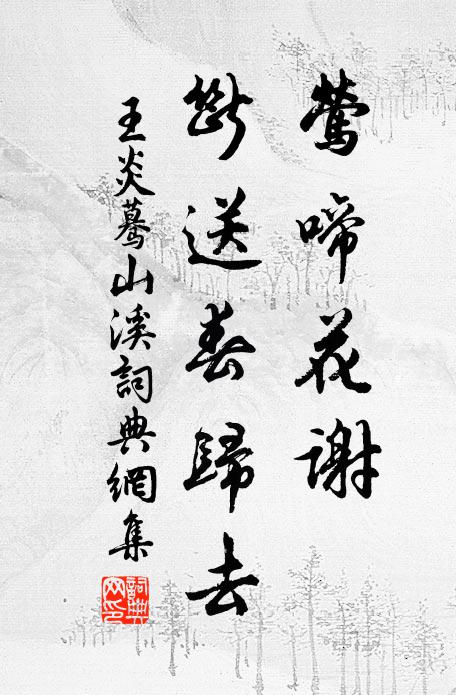 鶯啼花謝
斷送春歸去
王炎驀山溪詞典網集
詞典
网印